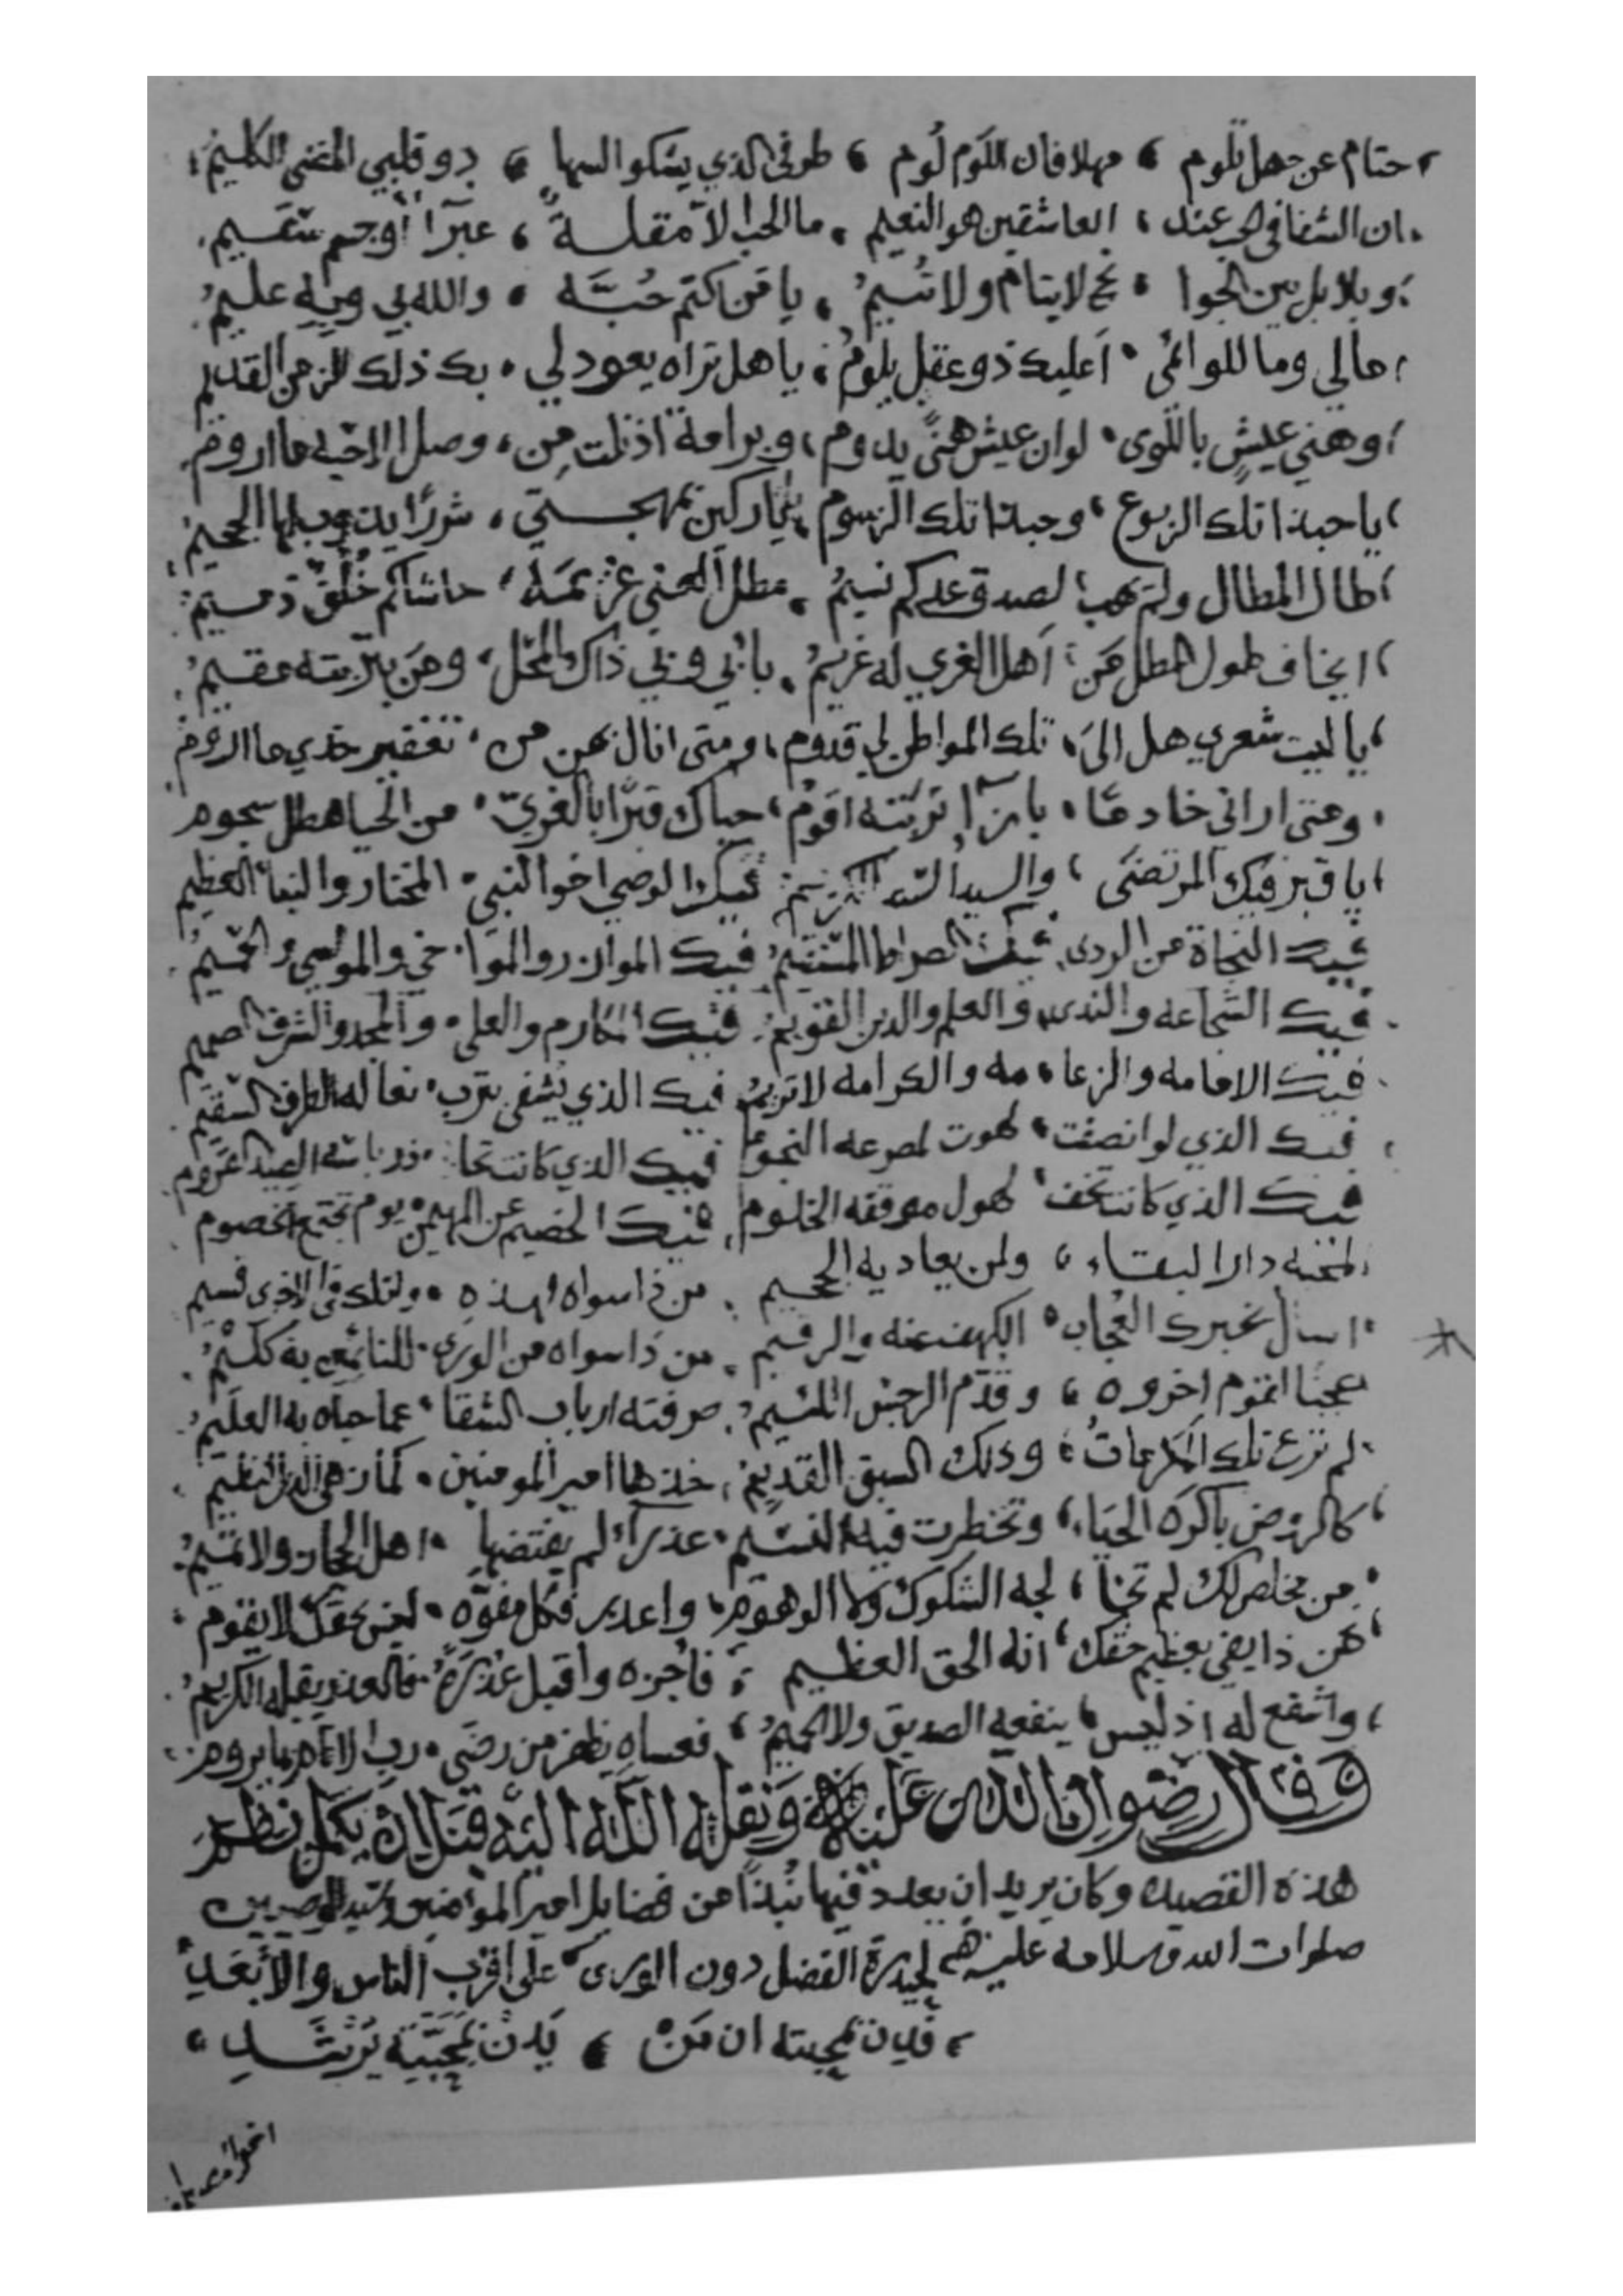 حتام عن جهل تلوم ، مهلا فان اللوم لوم ، طرفى الذي يشكو السها ، دو قلبي المضنى الكليم
ان الشقا فى الحب عند ، العاشقين هو النعيم ، ما الحب الا مقلة ، عبرا أوجسم سقيم
وبلابل بين الجوا ، نح لا يتام ولا تُسيمُ ، يا من اكتم حُبَّه ، والله بي وبه عليمُ
مالي وما للوائمى ، أعليك ذو عقل يلومُ ، يا هل تراه يعود لي ، بك ذلك الزمن القديم
وهني عيشٍ باللوى ، لو ان عيش هنىً يدوم ، وبرامة اذ نلت من ، وصل الاحبه ما اروم
يا حبذا تلك الربوع ، وحبذا تلك الرسوم ، يا تاركين بمهجتي ، شررًا يذوب لها الجحيم
طال المطال ولم يهب ، لصدق وعدكم نسيمُ ، مطل الغنى غريمَهُ ، حاشاكم خُلُقٌ ذميمُ
ايخاف طول المطل مَن ، أهل الغري له غريمُ ، بابي وبي ذاك المحل ، ومَن بتربته مقيمُ
يا ليت شعري هل الىَ ، تلك المواطن لي قدوم ، ومتى انال بهن من ، تعفير خدي ما اروم
ومتى اراني خادمًا ، بازآ تربته اقومُ ، حياك قبرًا بالغرىّ ، من الحيا هطل سجوم
يا قبر فيك المرتضى ، والسيد السند الكريم فيك الوصي اخو النبي ، المختار والنبأ العظيم
فيك النجاة من الردى ، فيك الصراط المستقيمُ فيك الموازر والموا ، خي والمواسي والحميمُ
فيك الشجاعه والندى ، والعلم والدين القويمُ فيك المكارم والعلى ، والمجد والشرف الصميم
فيك الامامه والزعا ، مه والكرامه لا تريمُ فيك الذي يشفى بترب ، نعاله الطرف السقيم
فيك الذي لو انصفت ، لهوت لمصرعه النجومُ فيك الذي كانت تحا ، ذر باسه الصيد القروم
فيك الذي كانت تخف ، لهول موقفه الحلوم ، فيك الخصيم عن المهيمن يوم تجتمع الخصوم
لمحبه دار البقاء ، ولمن يعاديه الجحيم ، من ذا سواه لهذه ، ولتلك فى الاخرى قسيم
اسأل بخبرك العُجاب ، الكهف عنه والرقيم ، من ذا سواه من الورى ،
عجبًا لقوم اخروه ، وقُدّم الرجس اللئيمُ ، صرفته ارباب الشقا ، عما حباه به العليمُ
لم ترع تلك المكرمات ، وذلك السبق القديمُ ، خذها امير المومنين ، كما زهى الدر النظيم
كالروض باكره الحيَا ، وتخطرت فيه النسيم ، عذرآ لم يفتضها ، اهل الحجاز ولا تميمُ
من مخلص لك لم تخا ، لجه الشكوك ولا الوهوم ، واعذر فكل مفوّه ، لعن بحقك لا يقوم
فمن ذا يفي بعظيم حقك ، انه الحق العظيم ، فاجزه واقبل عُذرَهُ ، فالعذر يقبله الكريمُ
واشفع له اذ ليس ، ينفعه الصديق ولا الحميمُ ، فعساه يظفر من رضَى ، رب الانام بما يروم
وَقَالَ رِضْوان اللهِ عَلَيْهِ وَنَقَلَهُ اللَّهُ الَيْهِ قَبْلَ اَنْ يَكمل نظم
هذه القصيده وكان يريد ان يعدد فيها نُبذًا من فضايل امير المومنين وسيد الوصيين
صلوات الله وسلامه عليهم لحيدرة الفضل دون الورى ، على اقرب الناس والأبعَدِ
، فَدِن بمحبته ان مَنْ ، يَدِنْ بمحبّتِهِ يَرْشَدِ ،